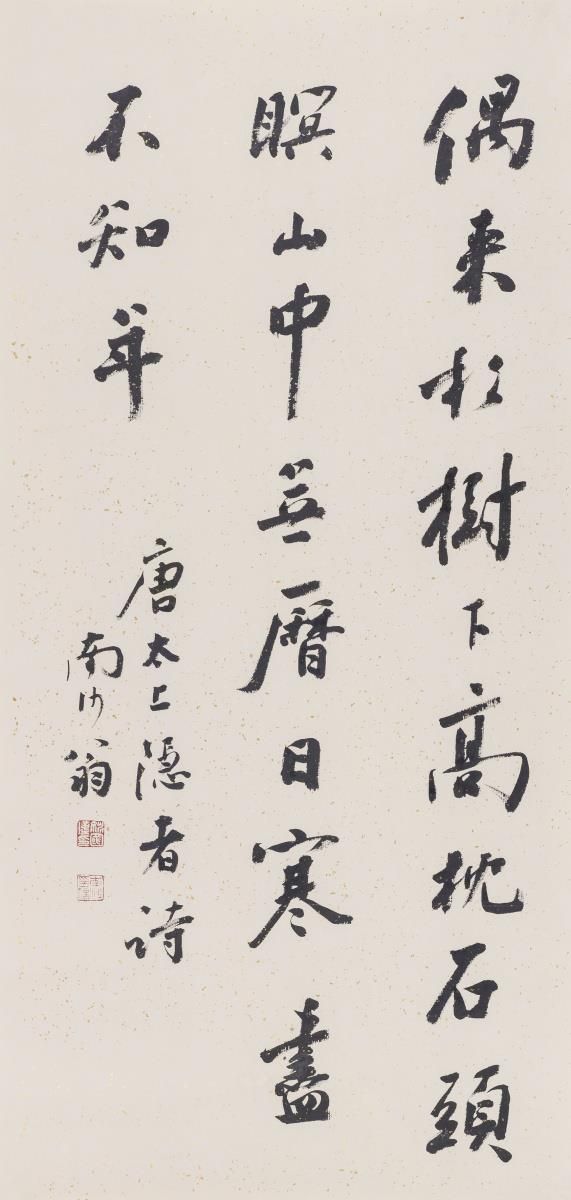 偶来松樹下高枕石頭
瞑山中無曆日寒盡
不知年
唐太上隱者詩
南沙翁